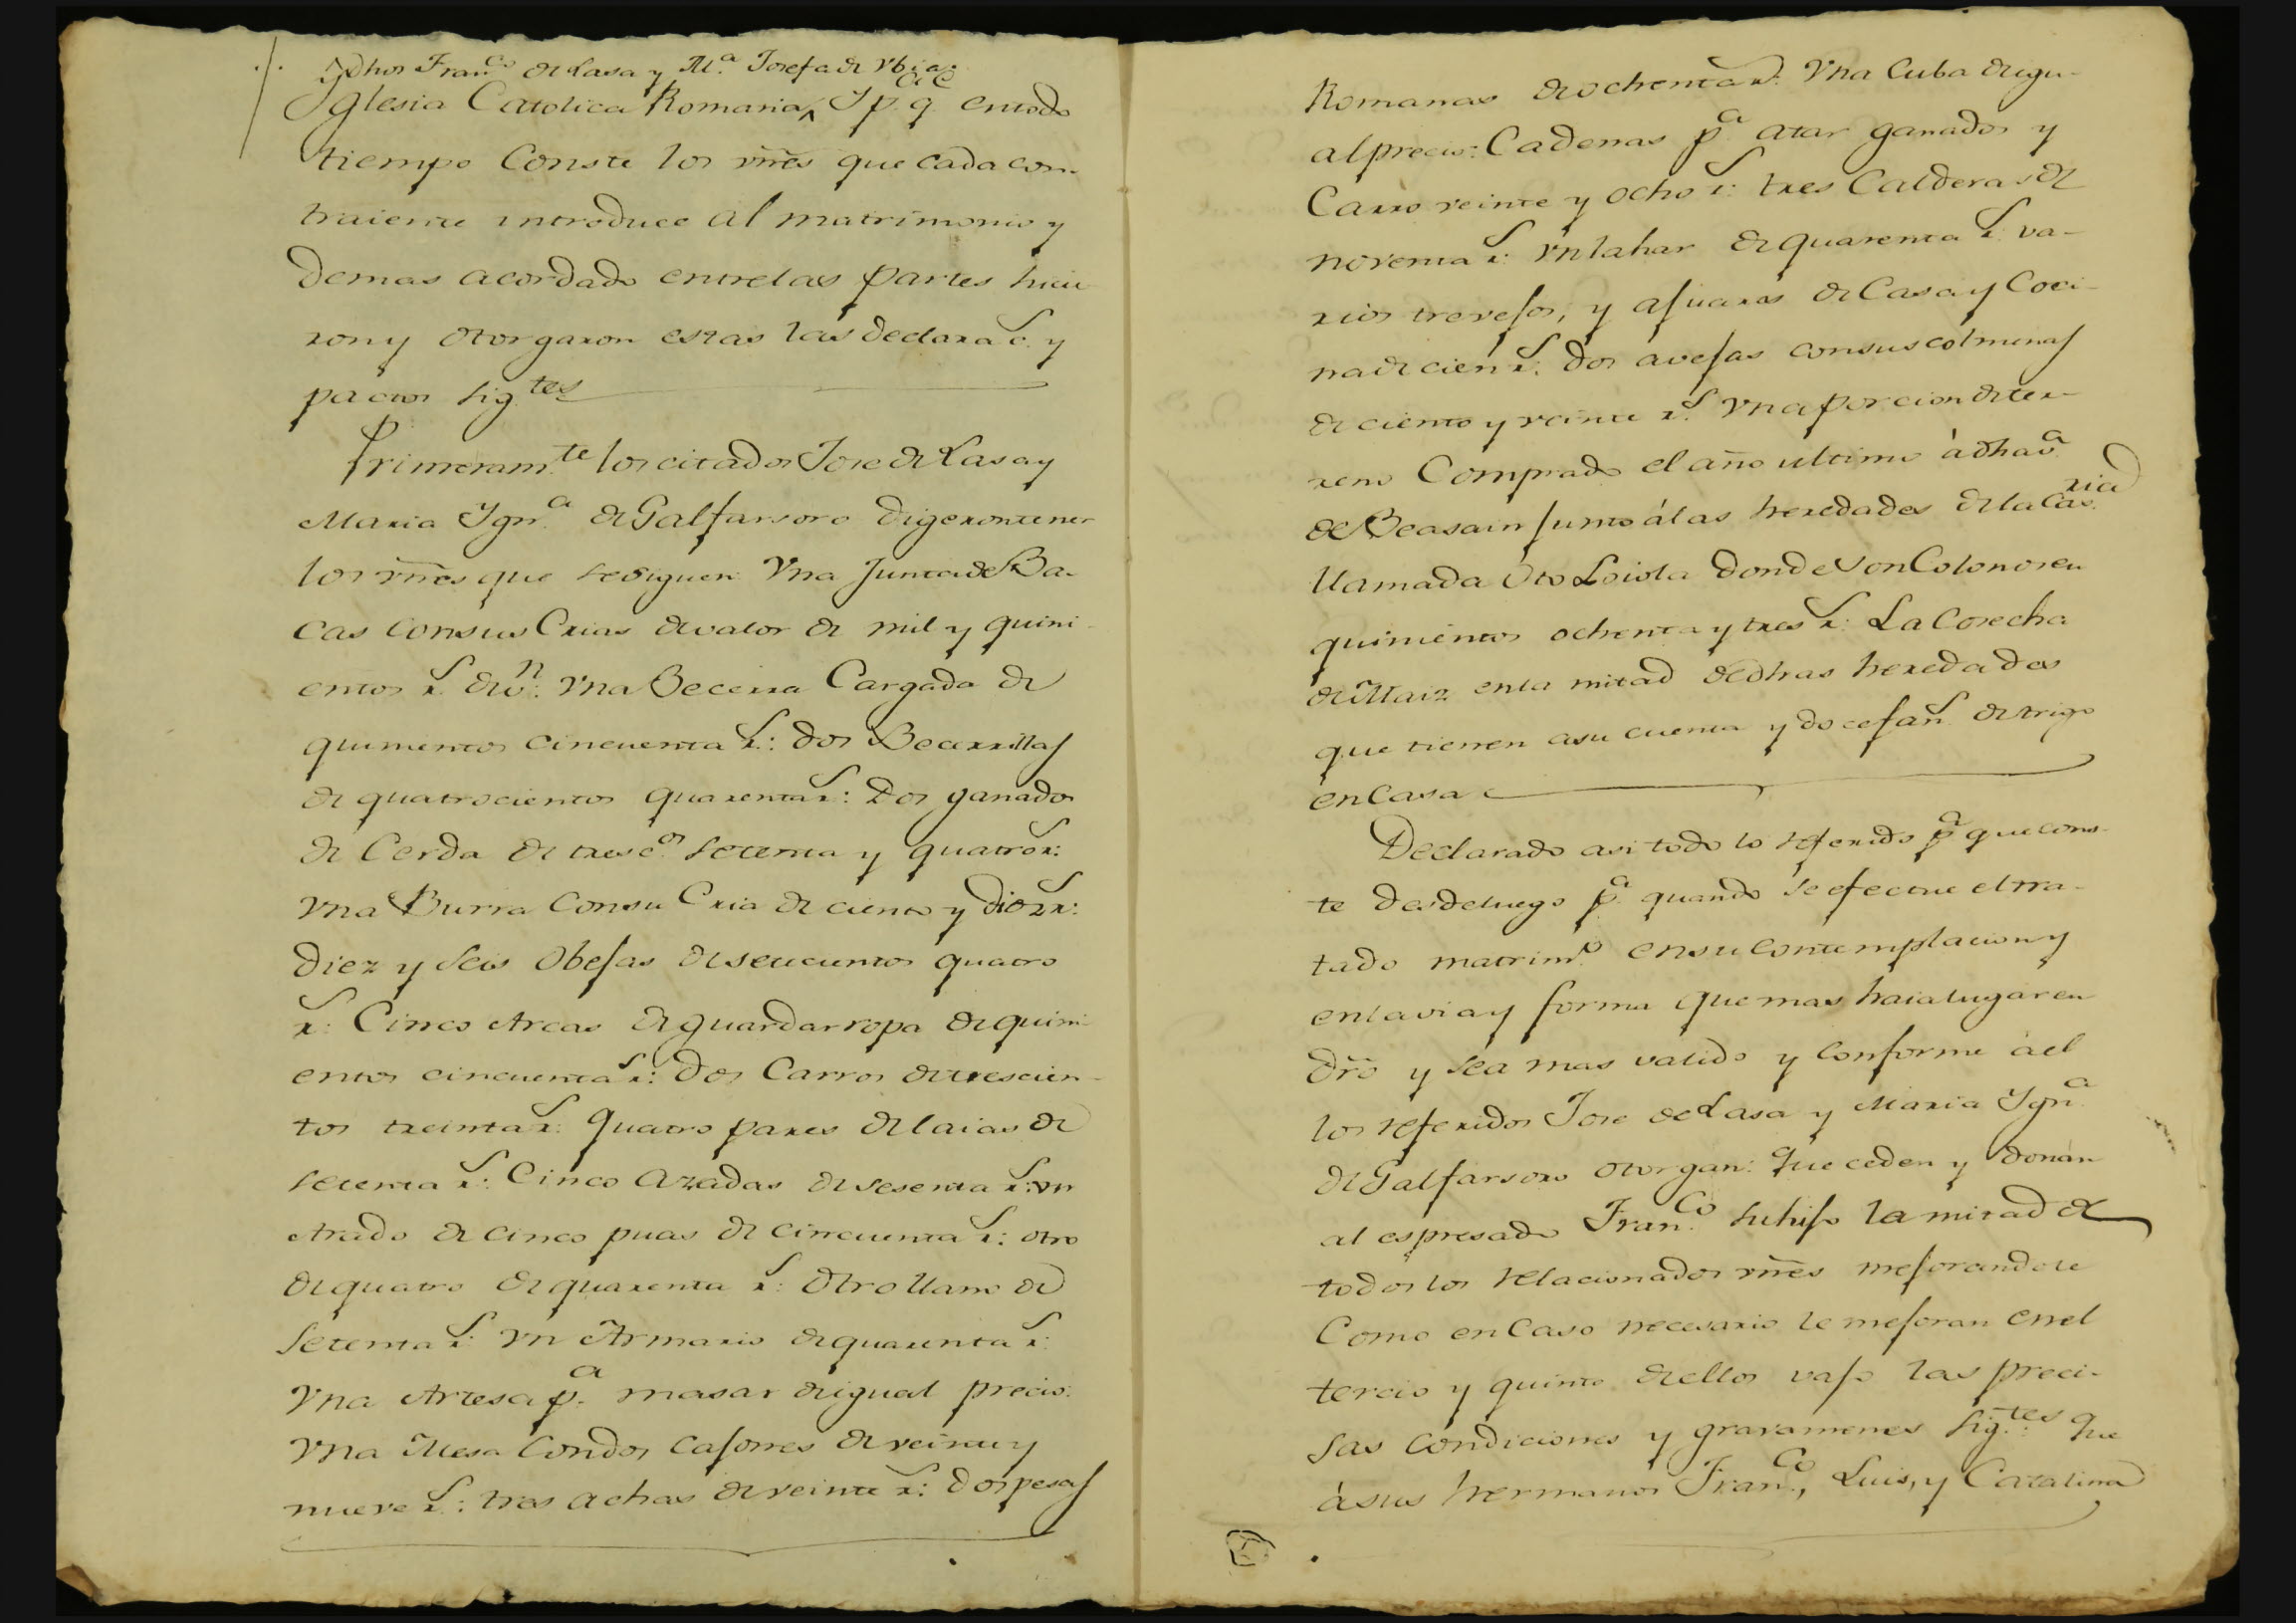 Ydhos Fran.co de Lasa y M.a Josefa de Vbia
Yglesia Catolica Romana, Y p.a q.e entodo
tiempo Conste los vñes que cada con-
traiente introduce al matrimonio y
demas acordado entrelas partes hicie
ron y otorgaron estas las declarac.s y
pactos sig.tes
Primeram.te los citados Jose de Lasa y
Maria Ygn.a de Galfarsoro digeron tener
los vñes que se siguen Vna Junta de Ba-
cas consus Crias de valor de mil y quini-
entos r.s de v.n: Vna Becerra Cargada de
quinientos cincuenta r.s: dos Becerrillas
de quatrocientos quarenta r.s: Dos ganados
de Cerda de tresc.os setenta y quatro r.s:
Vna Burra Consu Cria de ciento y diez r.s:
Diez y seis Obejas de seiscientos quatro
r.s: Cinco Arcas de guardar ropa de quini-
entos cincuenta r.s: Dos Carros de trescien-
tos treinta r.s: Quatro pares de laias de
setenta r.s: Cinco Azadas de sesenta r.s: vn
Arado de cinco puas de cincuenta r.s: otro
de quatro de quarenta r.s: Otro llano de
Setenta r.s: Vn Armario de quarenta r.s:
Vna Artesa p.a masar de igual precio:
Vna Mesa Condos cajones de veinte y
nueve r.s: tres achas de veinte r.s: Dos pesas
Romanas de ochenta r.s: Vna Cuba de igu-
al precio: Cadenas p.a atar ganados y
Carro veinte y ocho r.s: tres Calderas de
noventa r.s: Vn lahar de quarenta r.s: va-
rios trevejos, y ajuares de Casa y Coci-
na de cien r.s: dos avejas consus colmenas
de ciento y veinte r.s Vna porcion de ter-
reno Comprado el año ultimo à dha V.a
de Beasain junto á las heredades de la Cas.ria
llamada Oto Loiola donde son Colonos en
quinientos ochenta y tres r.s: La Cosecha
de Maiz en la mitad de dhas heredades
que tienen asu cuenta y doce fan.s de trigo
en Casa
Declarado asi todo lo referido p.a que cons-
te desdeluego p.a quando se efectue el tra-
tado matrim.o ensu contemplacion y
en la via y forma que mas haia lugar en
dr̃o y sea mas valido y conforme à el
los referidos Jose de Lasa y Maria Ygn.a
de Galfarsoro otorgan: Que ceden y donan
al espresado Fran.co su hijo la mitad de
todos los relacionados vñes mejorandole
Como en Caso necesario le mejoran en el
tercio y quinto de ellos vajo las preci-
sas condiciones y gravamenes sig.tes: Que
à sus hermanos Fran.co, Luis, y Catalina